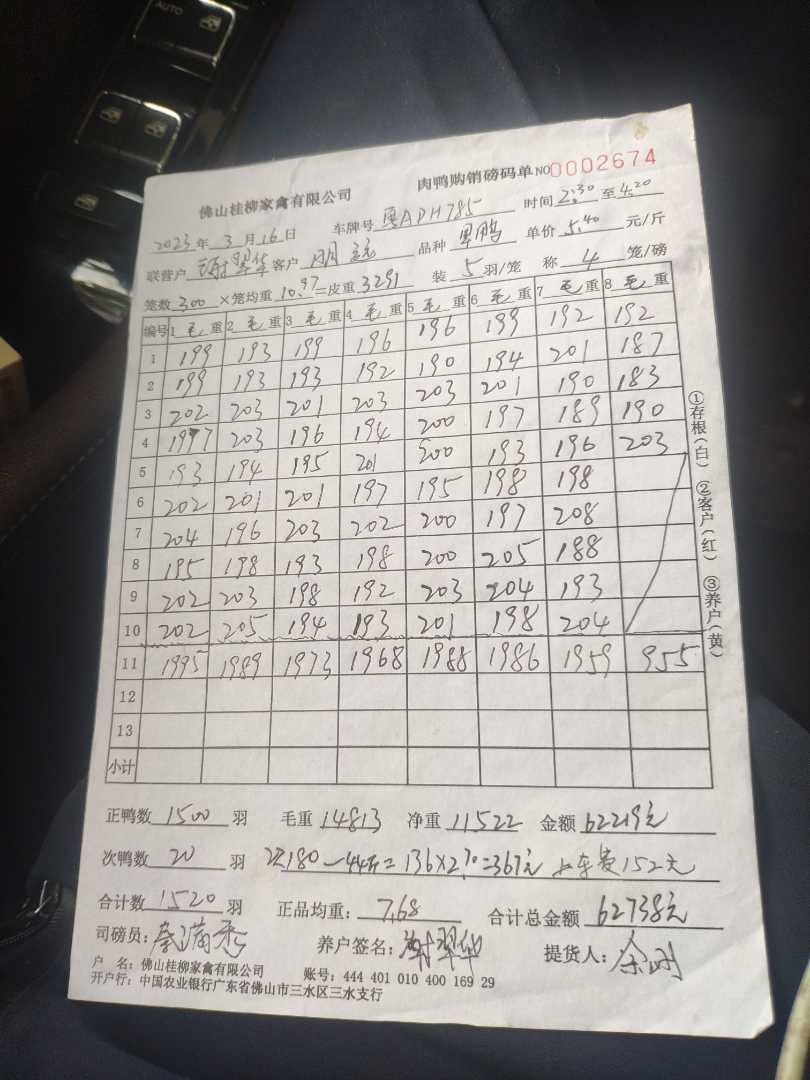 AUTO
佛山桂柳家禽有限公司 肉鸭购销磅码单 NO 0002674
2023年 3月 16日 车牌号 粤ADH785 时间 2:30 至 4:20
联营户 谢翠华 客户 品种 单价 5.40 元/斤
笼数 300 ×笼均重 10.97 =皮重 3291 装 5 羽/笼 称 4 笼/磅
编号 1 毛 重 2 毛 重 3 毛 重 4 毛 重 5 毛 重 6 毛 重 7 毛 重 8 毛 重
1 199 193 199 196 196 199 192 192
2 199 193 193 192 190 194 201 187
3 202 203 201 203 203 201 190 183
4 1997 203 196 194 200 197 189 190
5 193 194 195 201 200 193 196 203
6 202 201 201 197 195 198 198
7 204 196 203 202 200 197 208
8 195 198 193 198 200 205 188
9 202 203 198 192 203 204 193
10 202 205 194 193 201 198 204
11 1995 1989 1973 1968 1988 1986 1959 955
12
13
小计
①存根(白) ②客户(红) ③养户(黄)
正鸭数 1500 羽 毛重 14813 净重 11522 金额 62219元
次鸭数 20 羽 180-44斤=136×2.70=367元 车费152元
合计数 1520 羽 正品均重: 7.68 合计总金额 62738元
司磅员: 养户签名: 谢翠华 提货人:
户 名: 佛山桂柳家禽有限公司 账号: 444 401 010 400 169 29
开户行: 中国农业银行广东省佛山市三水区三水支行